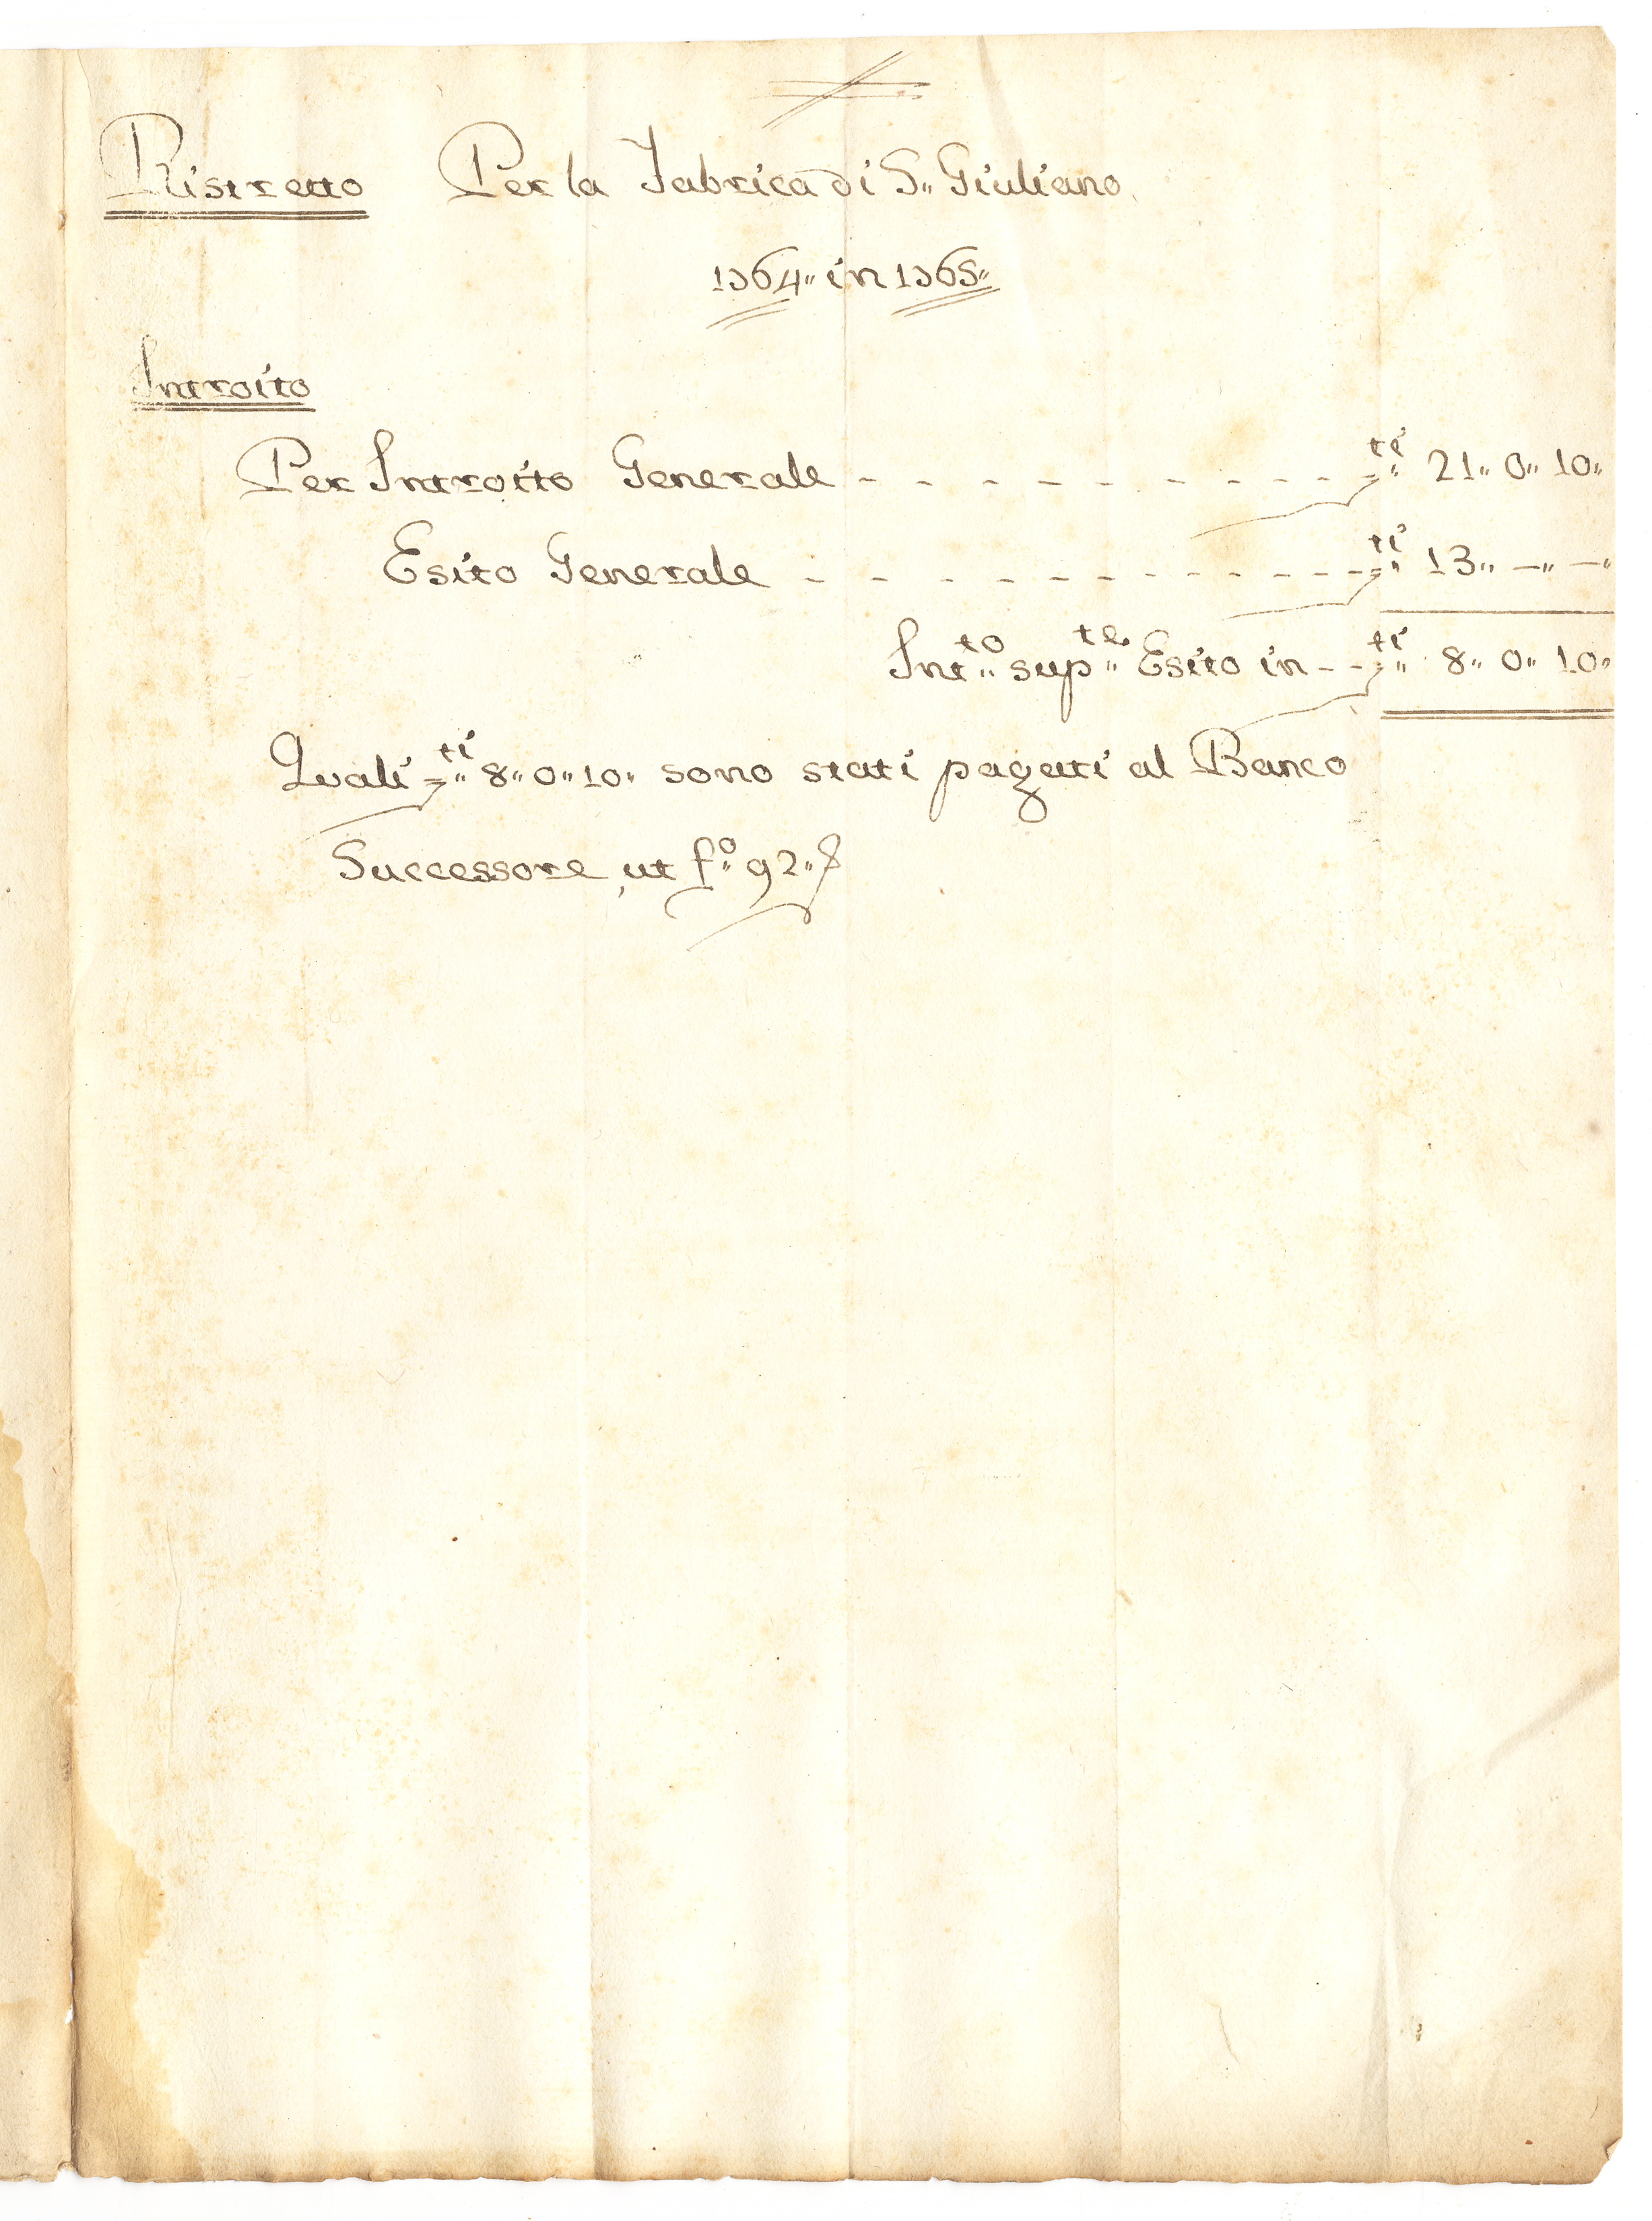 Ristretto Per la Fabrica di S„ Giuliano
1764„ in 1765„
Introito
Per Introito Generale - - - - - - - - - - - ti„ 21„ 0„ 10„
Esito Generale - - - - - - - - - - - - - ti„ 13„ —„ —„
Int„to sup„te Esito in - - ti„ 8„ 0„ 10„
Quali ti„ 8„ 0„ 10„ sono stati pagati al Banco
Successore, ut f„o 92„